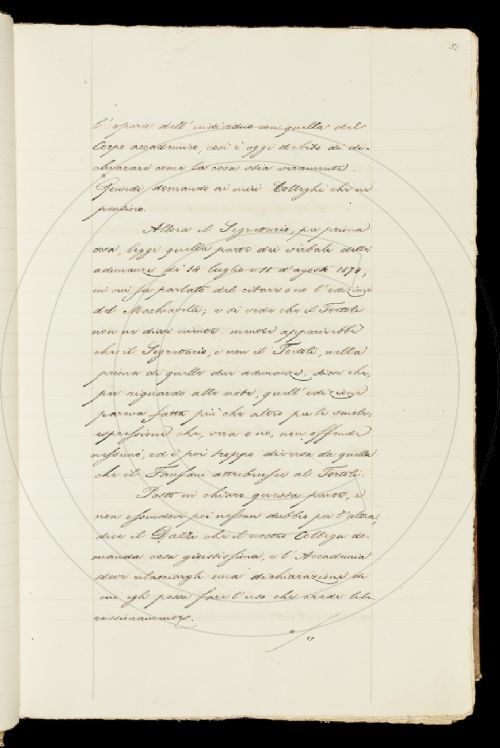 51
l'opera dell'individuo con quella del
Corpo accademico, così è oggi debito di di-
chiarare come la cosa stia veramente.
Quindi domando ai miei Colleghi che ne
pensino.
Allora il Segretario, per prima
cosa, legge quella parte dei verbali delle
adunanze di 14 luglio e 11 d'agosto 1874,
in cui fu parlato del citare o no l'edizione
del Machiavelli; e si vede che il Tortoli
non ne disse niente mentre apparirebbe
che il Segretario, e non il Tortoli, nella
prima di quelle due adunanze, disse che,
per riguardo alle note, quell'edizione
pareva fatta più che altro per le scuole;
espressione che, vera o no, non offende
nessuno, ed è poi troppo diversa da quella
che il Fanfani attribuisce al Tortoli.
Posto in chiaro questa parte, e
non essendovi poi nessun dubbio per l'altra,
dice il Dalli che il nostro Collega do-
manda cosa giustissima, e l'Accademia
deve rilasciargli una dichiarazione di
cui egli possa fare l'uso che crede